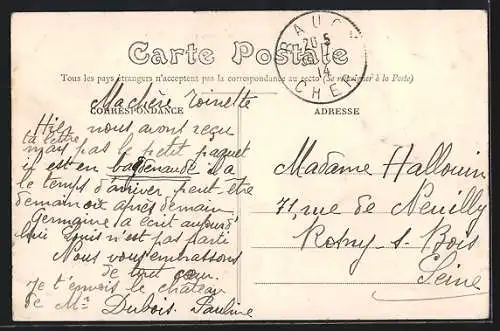 Carte Postale
BAUGY
20 5
11
14
CHER
Tous les pays étrangers n'acceptent pas la correspondance au recto (Se renseigner à la Poste)
CORRESPONDANCE
ADRESSE
Ma chère Toinette
Hier nous avons reçu
ta lettre
mais pas le petit paquet
il est en il a
le temps d'arriver peut être
demain ou après demain
Germaine a écrit aujourd'
hui n'est pas parti
Nous vous embrassons
de tout cœur.
Je t'envois le château
de Mr Dubois. Pauline
Madame Hallouin
71 rue de Neuilly
Rosny-s-Bois
Seine